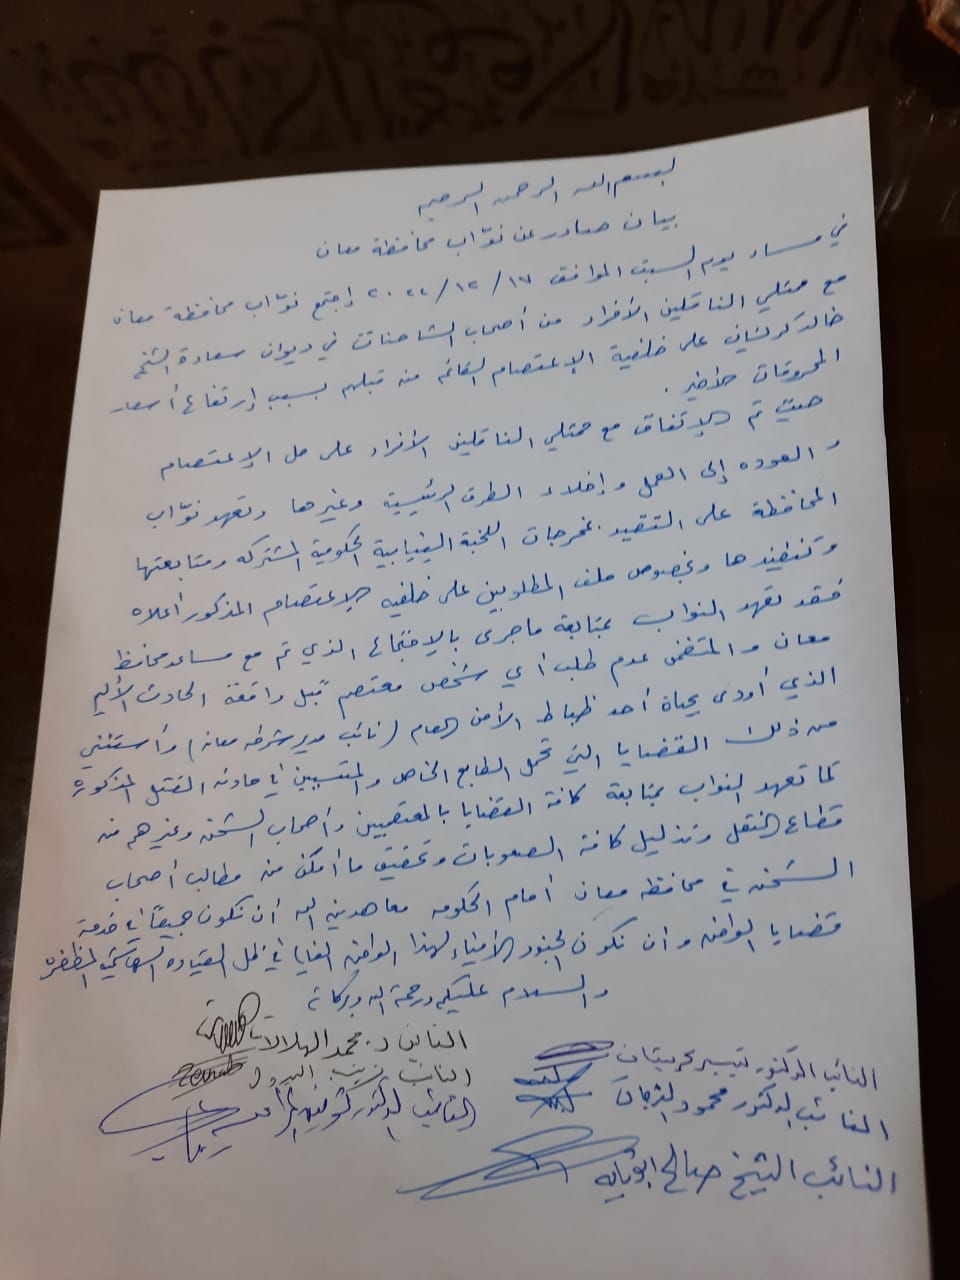 بسم الله الرحمن الرحيم
بيان صادر عن نوّاب محافظة معان
في مساء يوم السبت الموافق ١٧/١٢/٢٠٢٢ إجتمع نوّاب محافظة معان
مع ممثلي الناقلين الأفراد من أصحاب الشاحنات في ديوان سعادة الشيخ
خالد كريشان على خلفية الإعتصام القائم من قبلهم بسبب إرتفاع أسعار
المحروقات
حيث تم الإتفاق مع ممثلي الناقلين الأفراد على حل الإعتصام
و العوده إلى العمل وإخلاء الطرق الرئيسية وغيرها وتعهد نوّاب
المحافظة على التقيد بمخرجات اللجنة النيابية الحكومية المشتركه ومتابعتها
وتنفيذها وبخصوص ملف المطلوبين على خلفيه الإعتصام المذكور أعلاه
فقد تعهد النواب بمتابعة ماجرى بالإجتماع الذي تم مع مساعد محافظ
معان والمتضمن عدم طلب أي شخص معتصم قبل واقعة الحادث الأليم
الذي أودى بحياة أحد ظباط الأمن العام (نائب مدير شرطه معان) وأستثني
من ذلك القضايا التي تحمل الطابع الخاص والمتسببين في حادثه القتل المذكورة
كما تعهد النواب بمتابعة كافة القضايا بالمعتصمين وأصحاب الشحن وغيرهم من
قطاع النقل وتذليل كافة الصعوبات وتحقيق ما أمكن من مطالب أصحاب
الشحن في محافظه معان أمام الحكومه معاهدين الله أن نكون جميعاً في خدمة
قضايا الوطن وأن نكون الجنود الأمناء لهذا الوطن الغالي في ظل القياده الهاشميه المظفره
والسلام عليكم ورحمة الله وبركاته
النائب د. محمد الهلالات
النائب الدكتور تيسير كريشان
النائب زينب البدول
النائب الدكتور محمود
النائب الدكتور
النائب الشيخ صالح ابوتايه